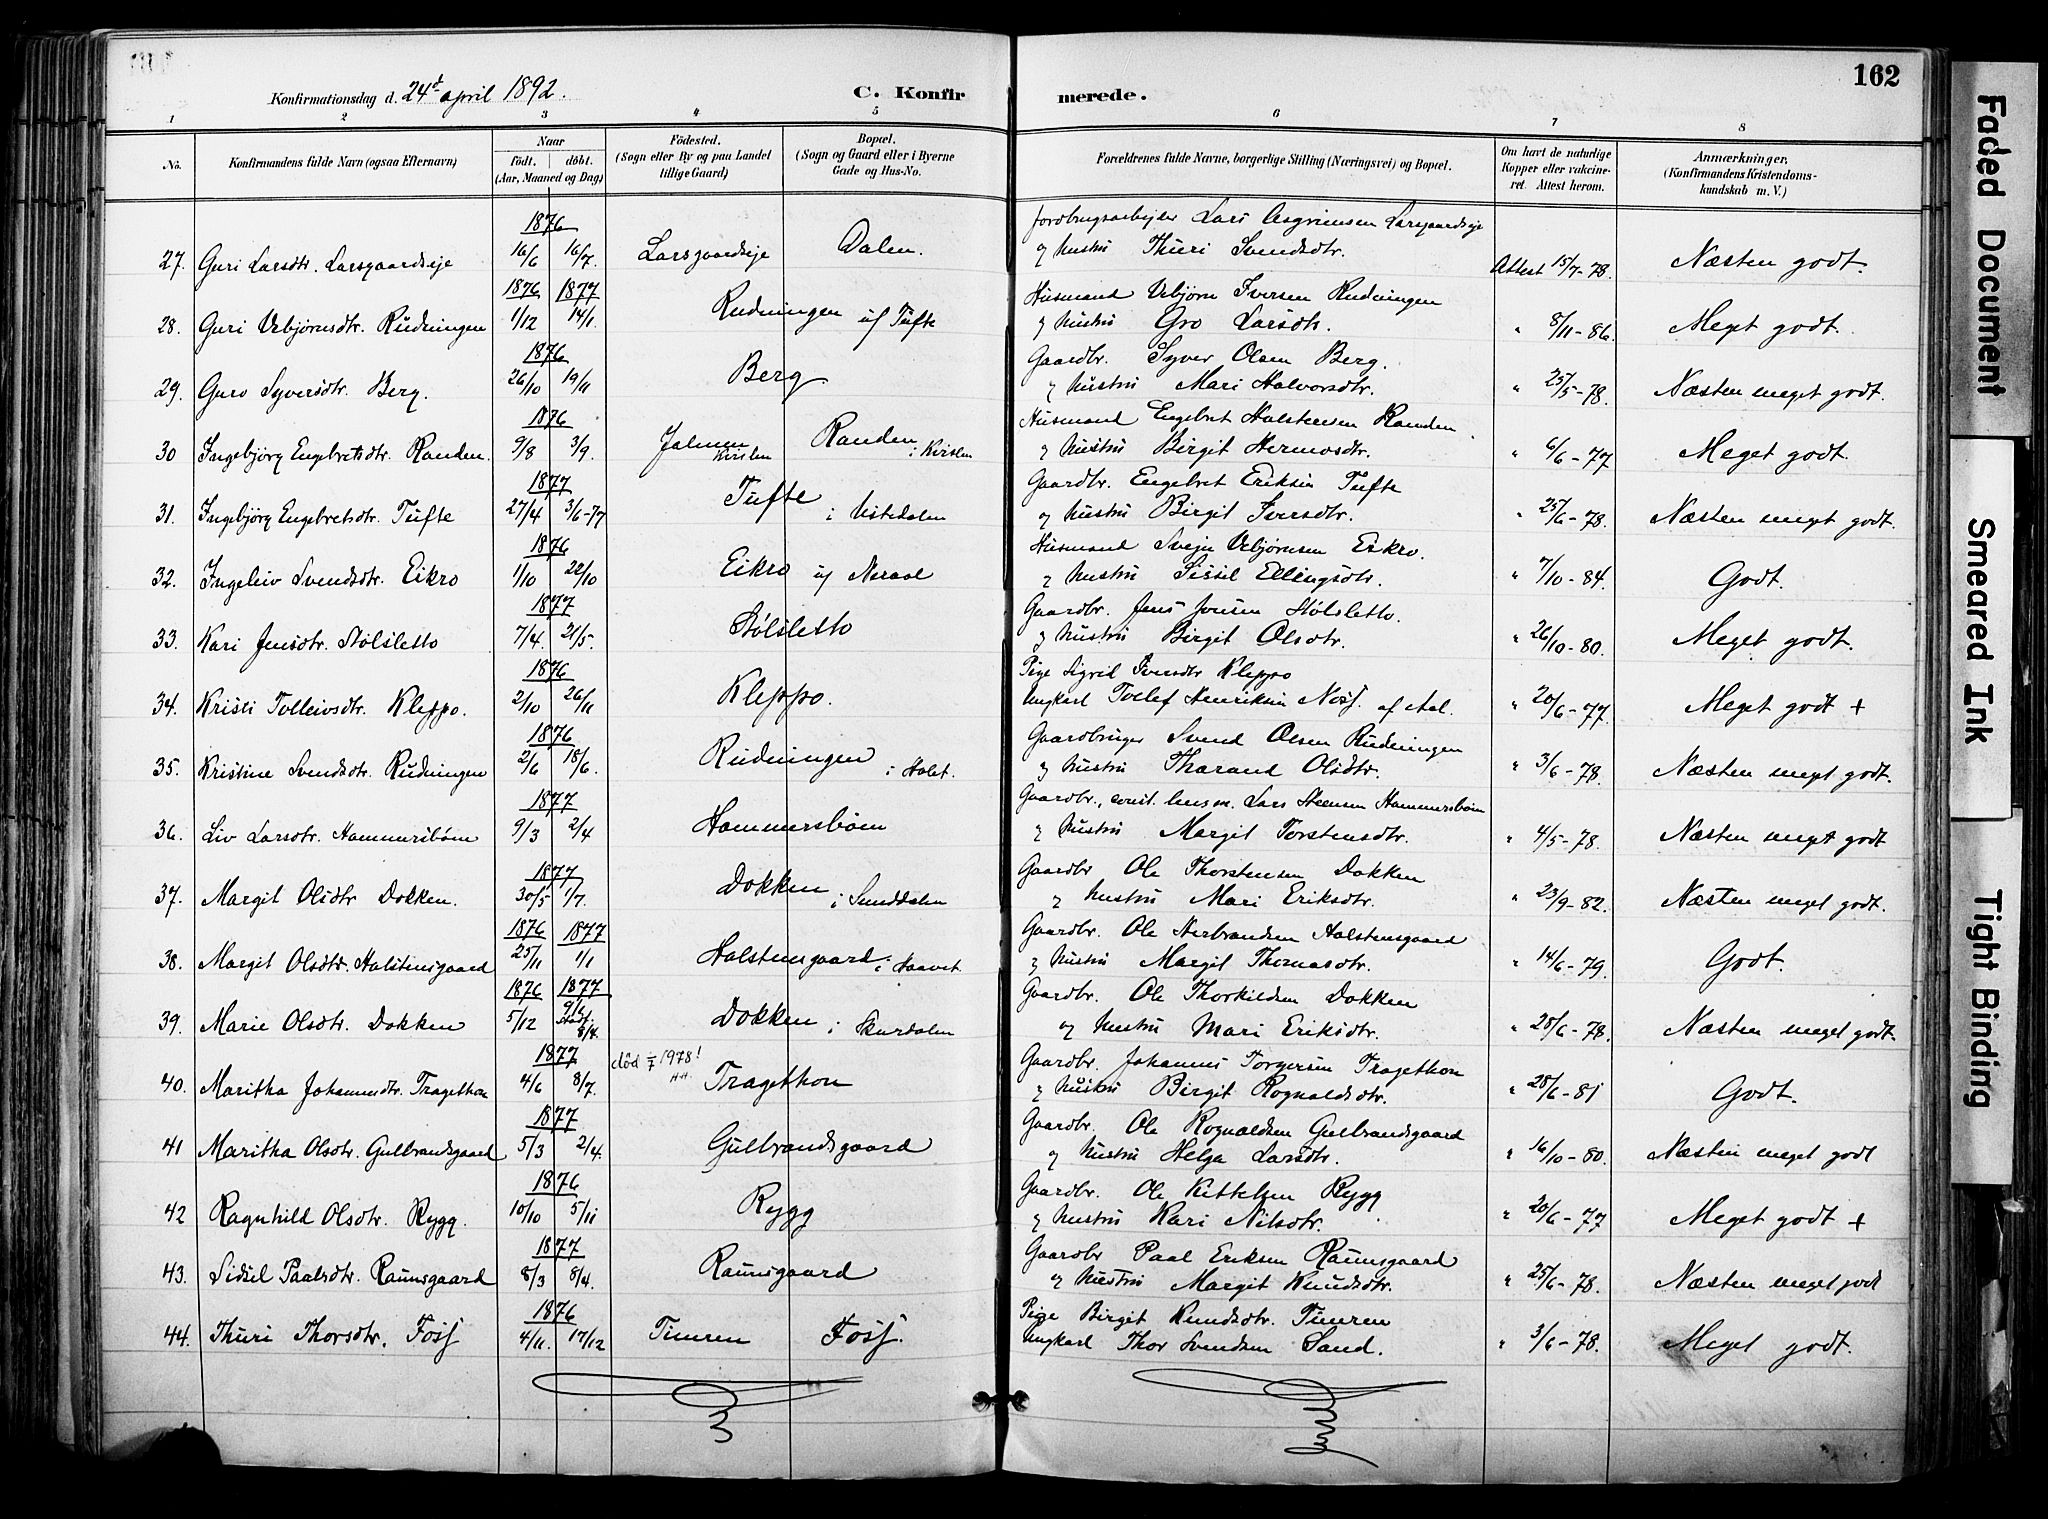 162
Konfirmationsdag d. 24d april 1892.
C. Konfirmerede.
1 2 3 4 5 6 7 8
No. Konfirmandens fulde Navn (ogsaa Efternavn) Naar födt. döbt. (Aar, Maaned og Dag) Födested. (Sogn eller By og paa Landet tillige Gaard) Bopæl. (Sogn og Gaard eller i Byerne Gade og Hus-No. Forældrenes fulde Navne, borgerlige Stilling (Næringsvei) og Bopæl. Om havt de naturlige Kopper eller vakcineret. Attest herom. Anmærkninger. (Konfirmandens Kristendomskundskab m. V.)
1876 Jordbrugsarbejder Lars Asgrimsen Larsgaardseje
27. Guri Larsdtr. Larsgaardseje 16/6 16/7. Larsgaardseje Dalen. og hustru Thuri Svendsdtr. Attest 15/7-78. Næsten godt.
1876 1877 Husmand Vebjørn Iversen Rudningen
28. Guri Vebjørnsdtr. Rudningen 1/12 14/1. Rudningen u/ Tufte og hustru Gro Larsdtr. " 8/11-86. Meget godt.
1876 Gaardbr. Syver Olsen Berg.
29. Guro Syversdtr. Berg. 26/10 19/11 Berg og hustru Mari Halvorsdtr. " 25/5-78. Næsten meget godt.
1876 Husmand Engebret Halstensen Randen
30 Ingebjörg Engebretsdtr. Randen. 9/8 3/9. Randen og hustru Birgit Hermosdtr. " 6/6-77 Meget godt.
1877 Gaardbr. Engebret Eriksen Tufte
31. Ingebjörg Engebretsdtr. Tufte 27/4 3/6-77 Tufte i Ustedalen og hustru Birgit Iversdtr. " 25/6-78. Næsten meget godt.
1876 Husmand Svejn Vebjørnsen Eikro.
32. Ingeleiv Svendsdtr. Eikro 1/10 22/10 Eikro u/ Neraal og hustru Sissil Ellingsdtr. " 7/10-84. Godt.
1877 Gaardbr. Jens Jonsen Stølsletto.
33. Kari Jensdtr. Stølsletto 7/4. 21/5. Stølsletto og hustru Birgit Olsdtr. " 26/10-80. Meget godt.
1876 Pige Sigrid Svensdtr Kleppo
34. Kristi Tolleivsdtr. Kleppo. 2/10 26/11 Kleppo. Ungkarl Tollef Henriksen Nos/. af Aal. " 20/6-77. Meget godt +
1876 Gaardbruger Svend Olsen Rudningen
35. Kristine Svendsdtr. Rudningen 2/6 18/6. Rudningen i Holet. og hustru Tharand Olsdtr. " 3/6-78. Næsten meget godt.
1877 Gaardbr., const. lensm. Lars Steensen Hammersbøen
36. Liv Larsdtr. Hammersbøen 9/3 2/4 Hammersbøen og hustru Margit Torstensdtr. " 4/5-78. Næsten meget godt
1877 Gaardbr Ole Thorstensen Dokken
37. Margit Olsdtr Dokken. 30/5 1/7. Dokken i Sunddalen og hustru Mari Eriksdtr. " 23/9-82. Næsten meget godt.
1876 1877 Gaardbr. Ole Herbrandsen Halstensgaard
38. Margit Olsdtr. Halstensgaard 25/11 1/1 Halstensgaard i Haavet. og hustru Margit Thomasdtr. " 14/6-79. Godt.
1876 1877 Gaardbr. Ole Thorkildsen Dokken
39. Marie Olsdtr. Dokken 5/12 8/4. Dokken i Skurdalen og hustru Mari Eriksdtr. " 28/6-78. Næsten meget godt.
1877 död 7/7 1978! HH. Gaardbr. Johannes Torgersen Tragethon
40. Maritha Johannesdtr. Tragethon 4/6 8/7. Tragethon og hustru Birgit Rognaldsdtr. " 28/6-81 Godt.
1877 Gaardbr. Ole Rognaldsen Gulbrandsgaard
41 Maritha Olsdtr. Gulbrandsgaard 5/3 2/4. Gulbrandsgaard og hustru Helga Larsdtr. " 16/10-80. Næsten meget godt
1876 Gaardbr. Ole Kittelsen Rygg
42 Ragnhild Olsdtr. Rygg. 10/10 5/11 Rygg og hustru Kari Nilsdtr. " 20/6-77 Meget godt +
1877 Gaardbr Paal Eriksen Raunsgaard
43. Sidsel Paalsdtr. Raunsgaard 8/3 8/4. Raunsgaard og hustru Margit Knudsdtr. " 25/6-78. Næsten meget godt
1876 Pige Birgit Knudsdtr. Timren
44. Thuri Thorsdtr. Foss 4/11. 17/12 Timren Foss. Ungkarl Thor Svendsen Sand. " 3/6-78. Meget godt.
Faded Document
Smeared Ink
Tight Binding